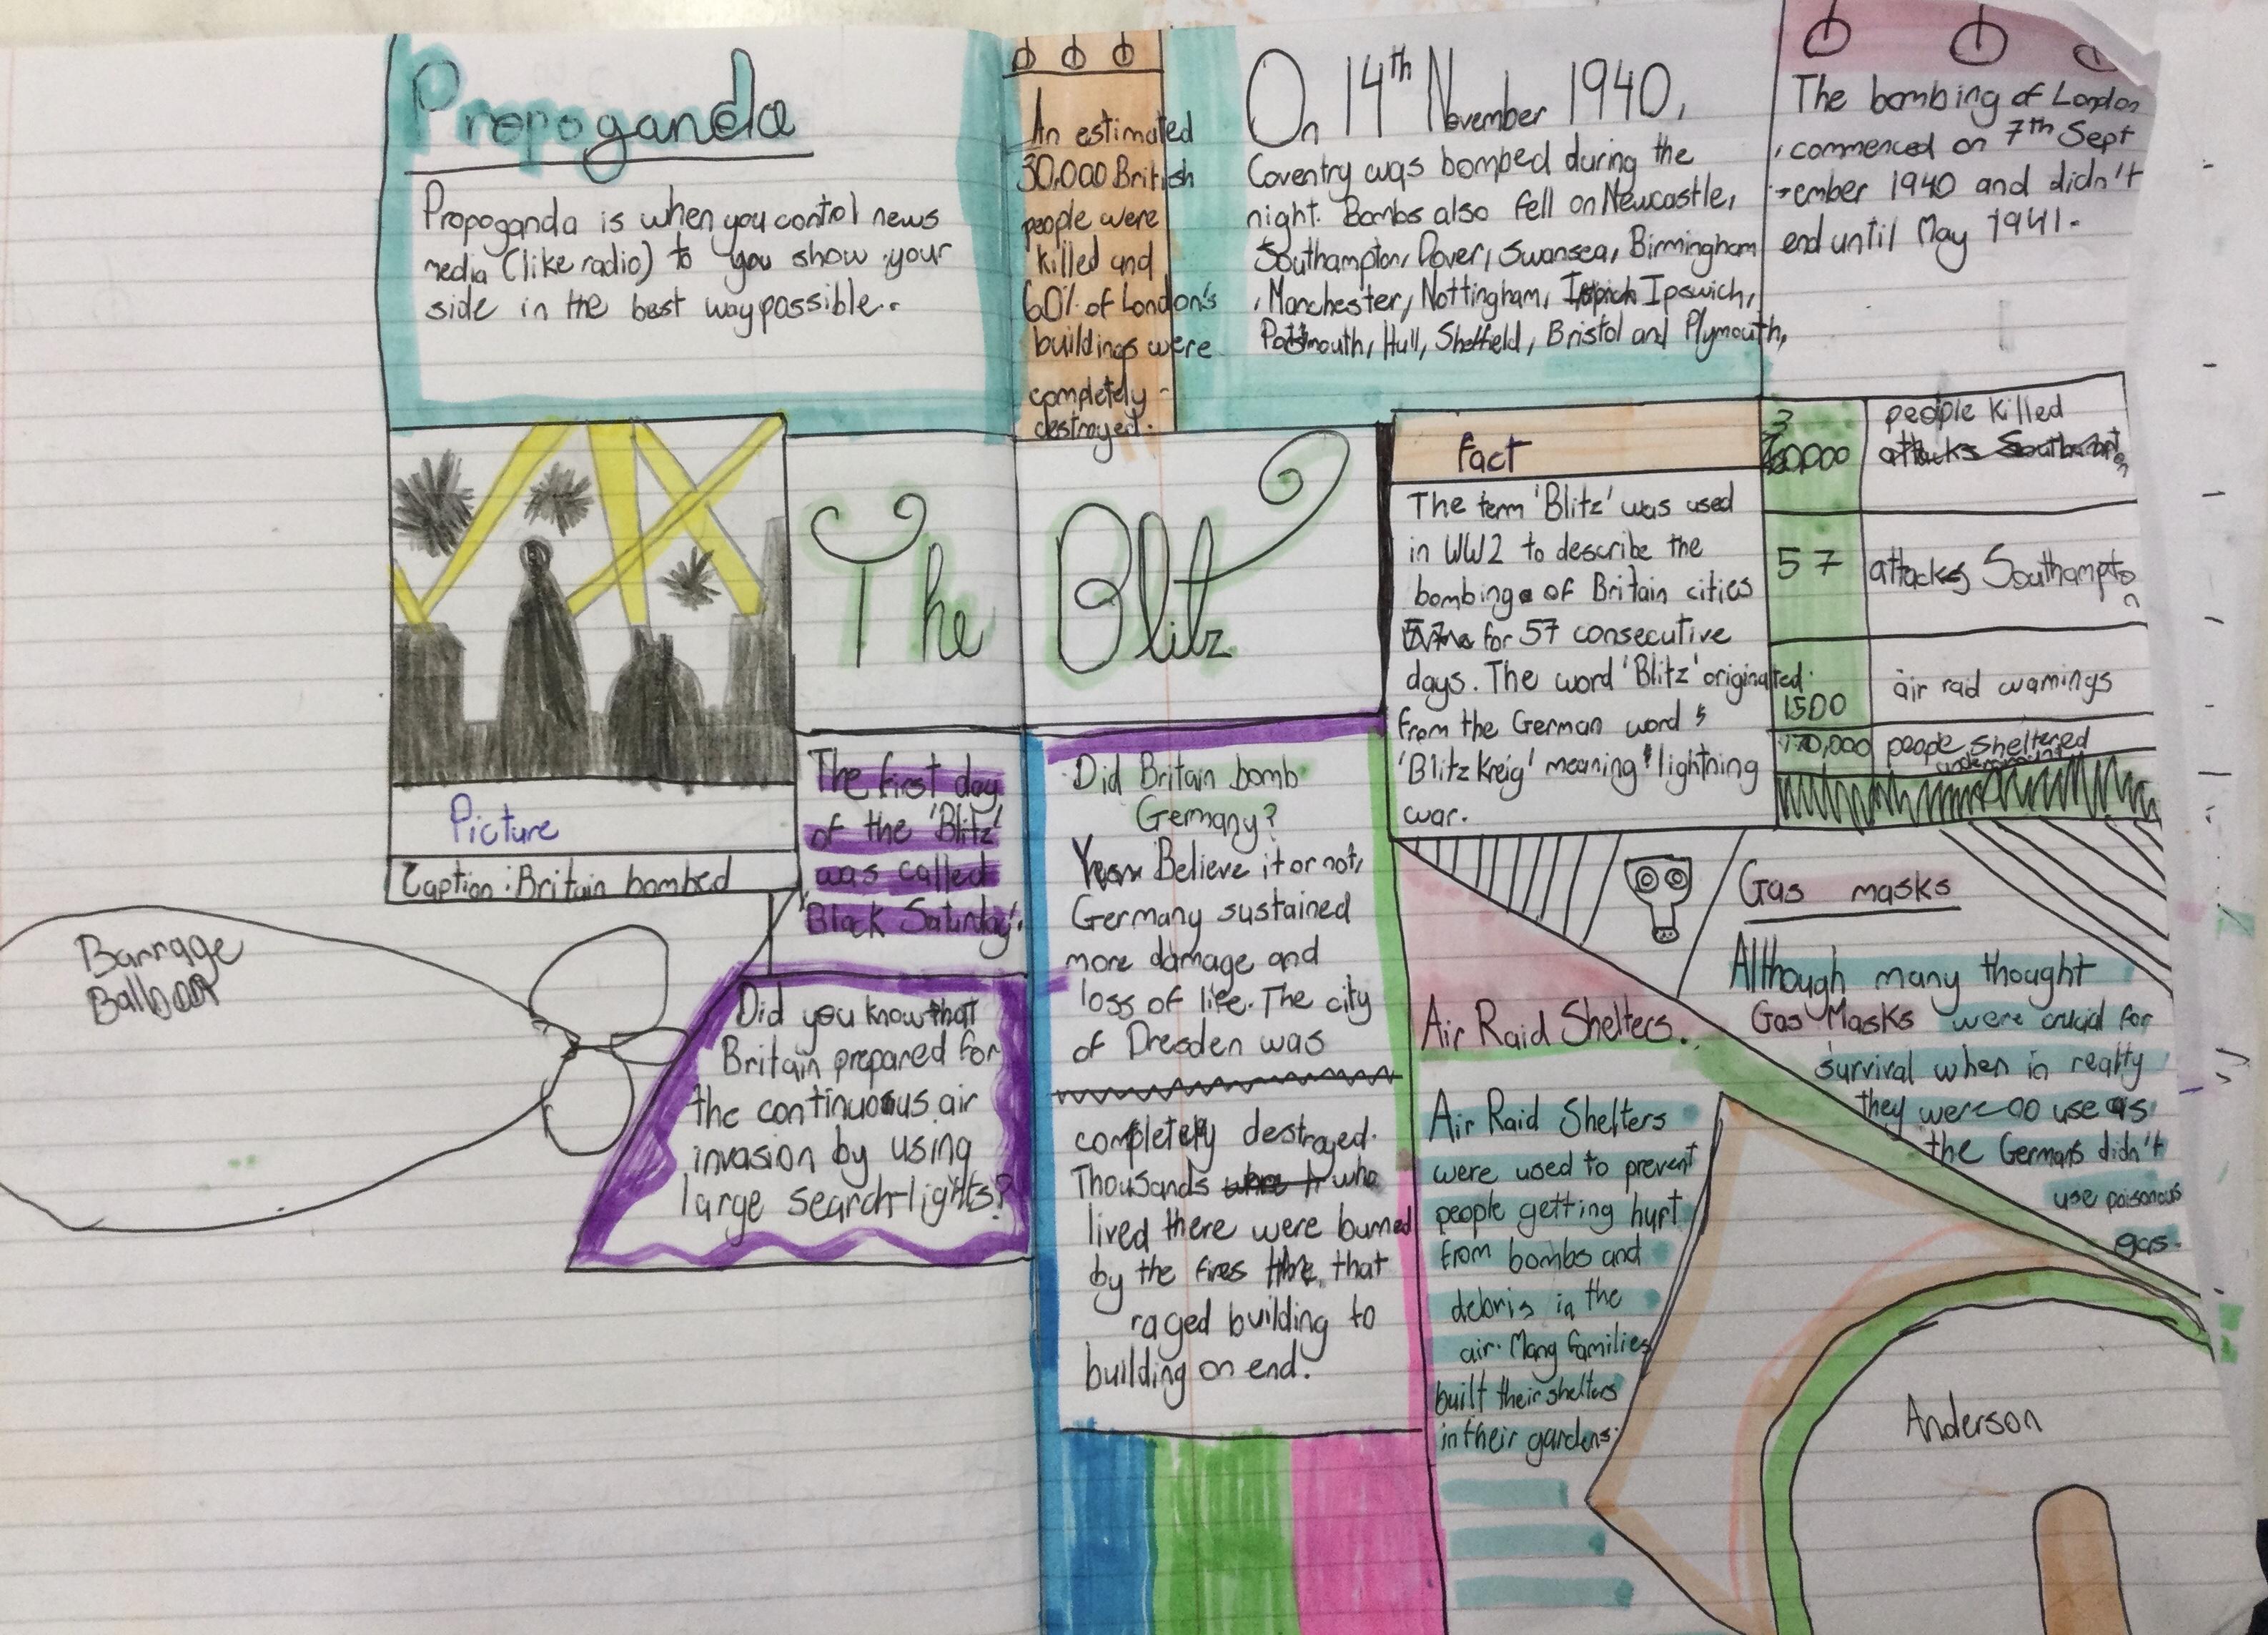 Propoganda
Propoganda is when you control news
media (like radio) to you show your
side in the best way possible..
An estimated
30,000 British
people were
killed and
60% of London's
buildings were
completely -
destroyed.
On 14th November 1940,
Coventry was bombed during the
night. Bombs also fell on Newcastle,
Southampton, Dover, Swansea, Birmingham
, Manchester, Nottingham, Ipswich,
Portsmouth, Hull, Sheffield, Bristol and Plymouth,
The bombing of London
commenced on 7th Sept
-ember 1940 and didn't
end until May 1941.
The Blitz
Picture
Caption: Britain bombed
Fact
The term 'Blitz' was used
in WW2 to describe the
bombing of Britain cities
for 57 consecutive
days. The word 'Blitz' originated
from the German word
'Blitz Kreig' meaning 'lightning
war.
30000 people killed
attacks Southampton
57 attacks Southampton
1500 air rad warnings
170,000 people sheltered
underground
The first day
of the 'Blitz'
was called
'Black Saturday'.
Barrage
Balloon
Did you know that
Britain prepared for
the continuous air
invasion by using
large search-lights?
Did Britain bomb
Germany?
Believe it or not,
Germany sustained
more damage and
loss of life. The city
of Dresden was
completely destroyed.
Thousands who
lived there were burned
by the fires that
raged building to
building on end.
Gas masks
Although many thought
Gas Masks were crucial for
survival when in realty
they were no use as
the Germans didn't
use poisonous
gas.
Air Raid Shelters.
Air Raid Shelters
were used to prevent
people getting hurt
from bombs and
debris in the
air. Many families
built their shelters
in their gardens.
Anderson